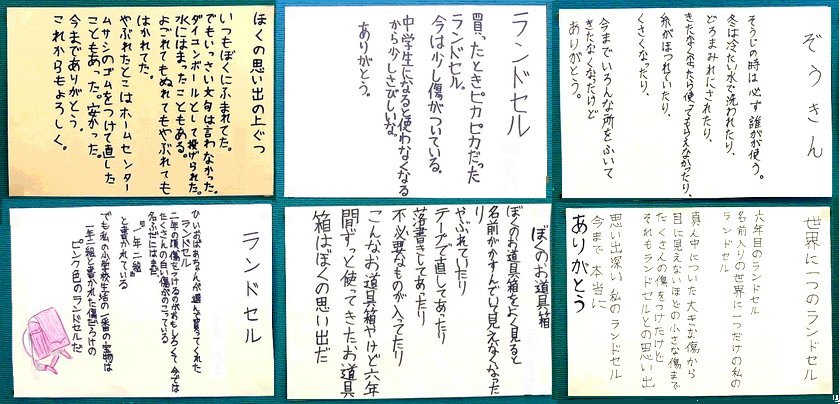 ぞうきん
そうじの時は必ず誰がが使う。
冬は冷たい水で洗われたり、
どろまみれにされたり、
きたなくなったら使ってもらえなかったり、
糸がほつれていたり、
くさくなったり、
今までいろんな所をふいて
きたなくなったけど
ありがとう。
ランドセル
買ったときピカピカだった
ランドセル。
今は少し傷がついている。
中学生になると使わなくなる
から少しさびしいな。
ありがとう。
ぼくの思い出の上ぐつ
いつもぼくにふまれてた。
でもいっさい文句は言わなかった。
ダイコンボールとして投げられた。
水にはまったこともある。
よごれてもぬれてもやぶれても
はかれてた。
やぶれたとこはホームセンター
ムサシのゴムをつけて直した
こともあった。安かった。
今までありがとう。
これからもよろしく。
世界に一つのランドセル
六年目のランドセル
名前入りの世界に一つだけの私の
ランドセル
真ん中についた大きな傷から
目に見えないほどの小さな傷まで
たくさんの傷をつけたけど
それもランドセルとの思い出
思い出深い私のランドセル
今まで本当に
ありがとう
ぼくのお道具箱
ぼくのお道具箱をよく見ると
名前がかすんでいて見えなくなった
り
やぶれていたり
テープで直してあったり
落書きしてあったり
不必要なものが入ってたり
こんなお道具箱やけど六年
間ずっと使ってきたお道具
箱はぼくの思い出だ
ランドセル
ひいおばあちゃんが選んで買ってくれた
ランドセル
二年の頃傷をつけるのがおもしろくて今では
たくさんの白い傷がのこっている
名ふだにはまだ、
「一年二組。」
と書かれている
でも私の小学校生活の一番の宝物は
一年二組と書かれた傷だらけの
ピンク色のランドセルだ